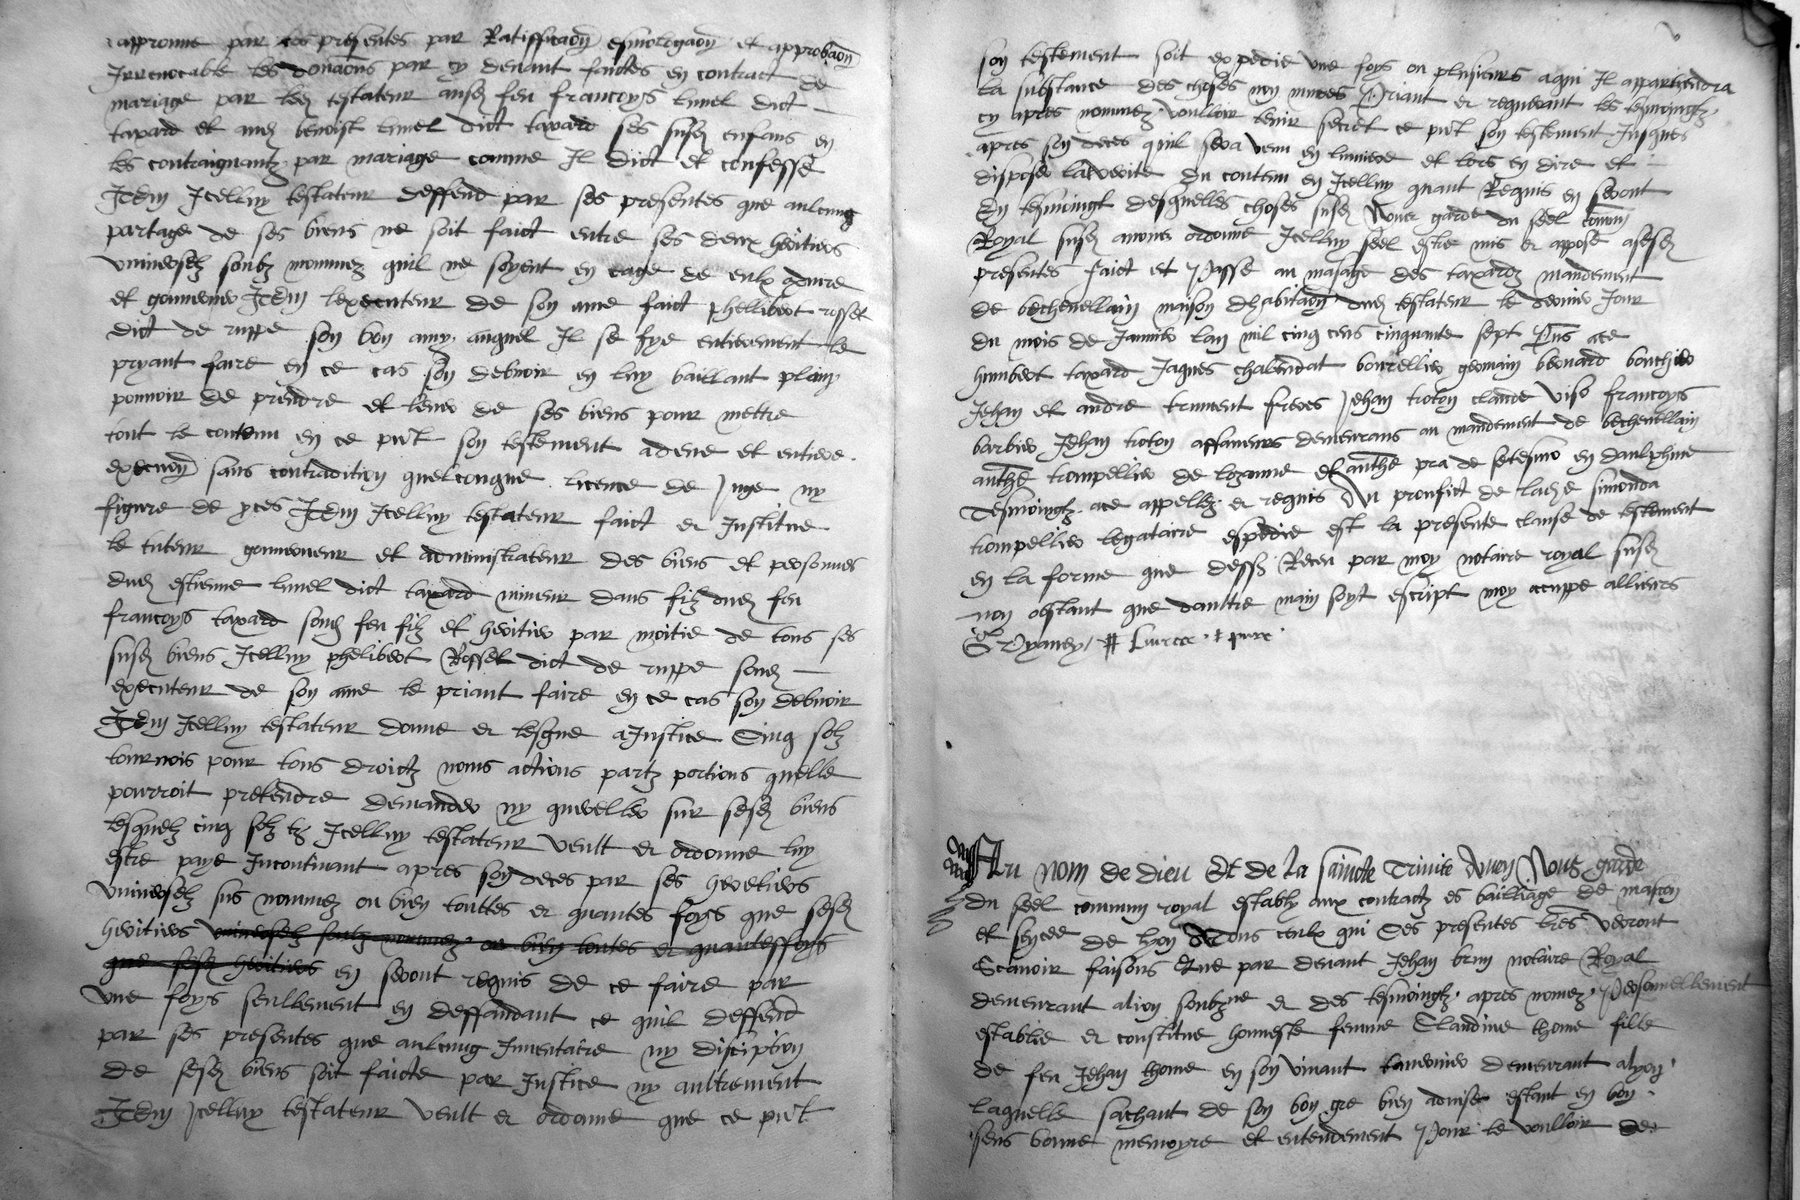 approuve par ces presentes par Ratifficaon esmologaon et approbaon
Irrevocable les donaons par cy devant faictes en contract de
mariage par led testateur aud feu francoys limel dict
taxard et aud benoist limel dict taxard ses susd enfans en
les contraignantz par mariage comme Il dict et confesse
Item Icelluy testateur deffend par ses presentes que aulcung
partage de ses biens ne soit faict entre ses deux heritiers
universelz soubz nommez quil ne soyent en eage de eulx
et gouverner Item lexecuteur de son ame faict phellibert rosset
dict de ruppe son bon amy auquel Il se fye entierement le
pryant faire en ce cas son debvoir en luy baillant plain
pouvoir de prendre et lever de ses biens pour mettre
tout le contenu en ce pnt son testement a deue et entiere
execuon sans contradition quelconque licence de Juge ny
figure de pces Item Icelluy testateur faict et Institue
le tuteur gouverneur et administrateur des biens et personnes
dud estienne limel dict taxard mineur dans filz dud feu
francoys taxard sond feu filz et heritier par moitie de tous ses
susd biens Icelluy phelibert Rosset dict de ruppe sond
executeur de son ame le priant faire en ce cas son debvoir
Item Icelluy testateur donne et legue a Justice Cinq solz
tournois pour tous droictz noms actions partz portions quelle
pourroit pretendre demander ny quereller sur sesd biens
lesquelz cinq solz tz Icelluy testateur veult et ordonne luy
estre paye Incontinant apres son deces par ses heretiers
universelz sus nommez ou bien touttes et quantes foys que sesd
heritiers universelz soubz nommez ou bien toutes et quanteffoys
que sesd heritiers en seront requis de ce faire par
une foys seullement en deffandant ce quil deffend
par ses presentes que aulcung Inventaire ny disciption
de sesd biens soit faicte par Justice ny aultrement
Item Icelluy testateur veult et ordonne que ce pnt
son testement soit expedie une foys ou plusieurs a qui Il appartiendra
la substance des choses non muees Priant et requerant les tesmoingtz
cy apres nommez voulloir tenir secret ce pnt son testement Jusques
apres son deces quil sera venu en lumiere et lors en dire et
disposer la verite du contenu en Icelluy quant Requis en seront
En tesmoingt desquelles choses susd Nous garde du seel comun
Royal susd avons ordonne Icelluy seel estre mis et appose a sesd
presentes faict et Passe au masage des taxardz mandement
de bechevellain maison dhabitaon dud testateur le dernier Jour
du mois de Janvier lan mil cinq cens cinquante sept Pns a ce
humbert taxard Jaques chalendat bourrellier germain benard bouchier
Jehan et andre trument freres Jehan troton claude viso francoys
barbier Jehan troton affaneurs demeurans au mandement de bechevellain
anthe trompellier de lozanne et anthe pra de setesmo en daulphine
Tesmoingtz a ce appellez et requis Au prouffict de lad simonda
trompellier legataire expedie est la presente clause de testement
en la forme que dess Receu par moy notaire royal susd
non obstant que daultre main soyt escript moy occuppe allieurs

Au nom de dieu Et de la saincte Trinite Amen Nous garde
du seel commun royal estably aux contractz es bailliage de mascon
et senecee de lyon A tous ceulx qui Ces presentes lres verront
Scavoir faisons Que par devant Jehan brun notaire Royal
demeurant a lion soubzne et des tesmoingtz apres nomez Personnellement
establie et constitue honneste femme Clandine home fille
de feu Jehan home en son vivant tanevrier demeurant a lyon
laquelle saichant de son bon gre bien advise estant en bon
sens bonne memoyre et entendement Pour le voulloir de